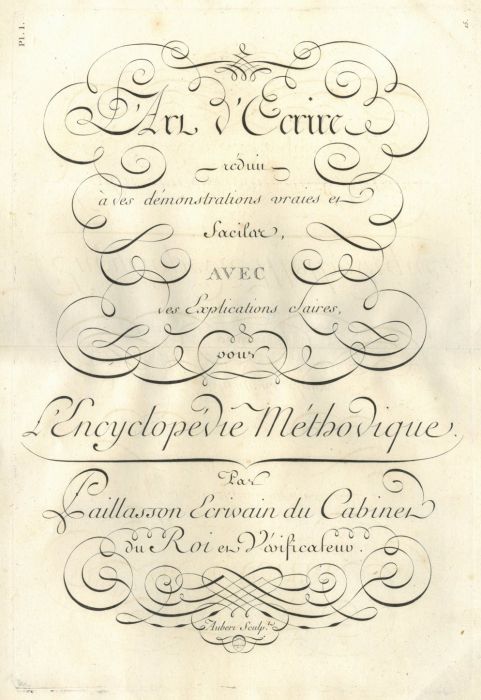 Pl. 1.
16.
L'Art d'Ecrire
réduit
à des démonstrations vraies et
faciles,
AVEC
des Explications claires,
pour
L'Encyclopédie Méthodique.
Par
Paillasson Ecrivain du Cabinet
du Roi et Vérificateur.
Aubert Sculp.t